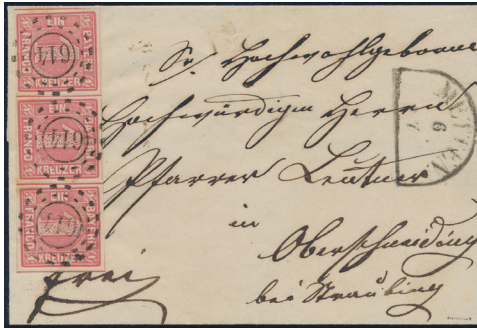 EIN
BAYERN
FRANCO
KREUZER
614
EIN
BAYERN
FRANCO
KREUZER
614
EIN
BAYERN
FRANCO
KREUZER
Sr. Hochwohlgeboren
Hochwürdigen Herrn
Pfarrer Leutner
in
Oberschneiding
bei Straubing
frei
METTEN
6
7